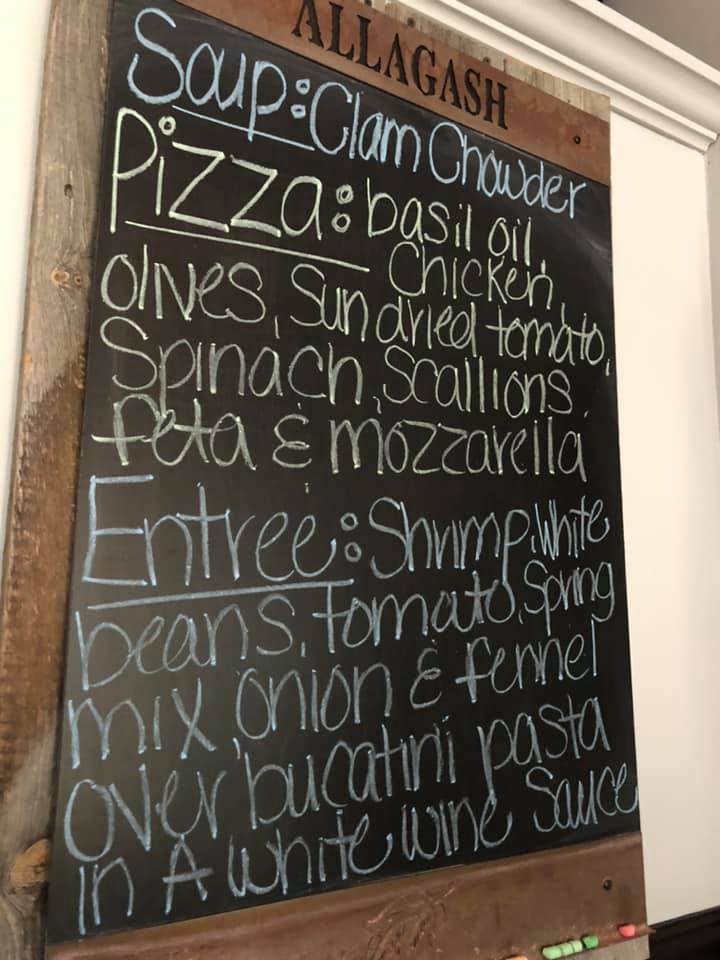 ALLAGASH
Soup: Clam Chowder
Pizza: basil oil,
Chicken,
olives, Sundried tomato,
Spinach, Scallions,
feta & mozzarella
Entree: Shrimp, White
beans, tomato, Spring
mix, onion & fennel
over bucatini pasta
in A white wine Sauce